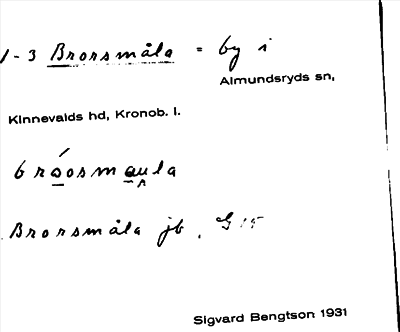 1-3 Brorsmåla = by i
Almundsryds sn,
Kinnevalds hd, Kronob. l.
bróosmaula
Brorsmåla jb.
Sigvard Bengtson 1931